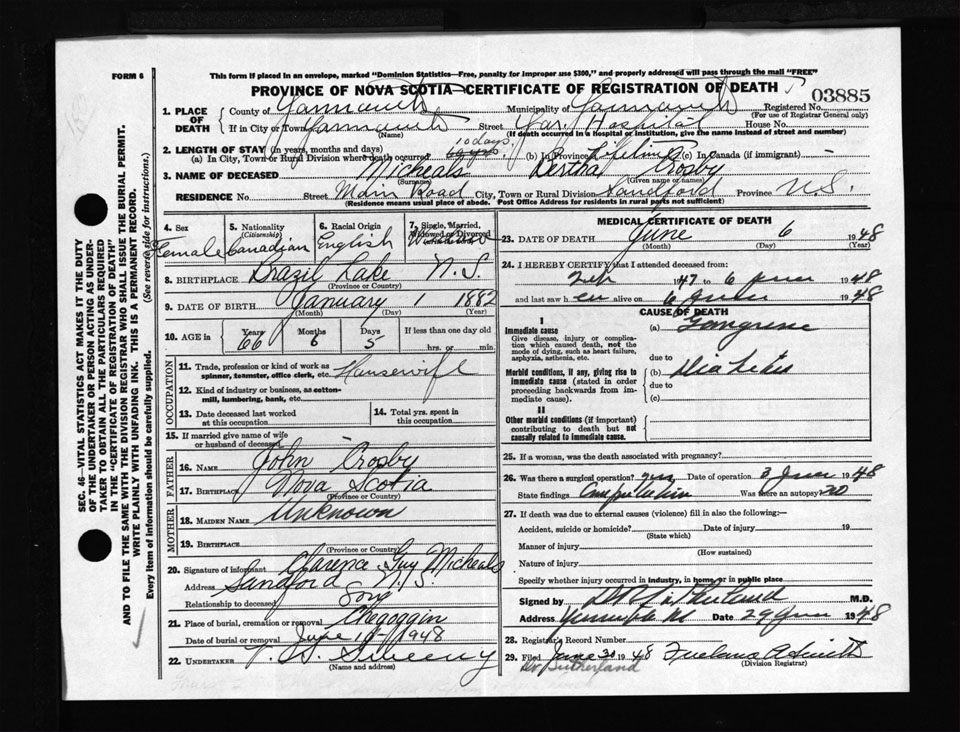 FORM 6
This form if placed in an envelope, marked "Dominion Statistics—Free, penalty for improper use $300," and properly addressed will pass through the mail "FREE"
PROVINCE OF NOVA SCOTIA—CERTIFICATE OF REGISTRATION OF DEATH
03885
1. PLACE OF DEATH
County of Yarmouth Municipality of Yarmouth Registered No.
(For use of Registrar General only)
If in City or Town Yarmouth Street Yar. Hospital House No.
(Name) (If death occurred in a Hospital or Institution, give the name instead of street and number)
2. LENGTH OF STAY (in years, months and days) 10 days,
(a) In City, Town or Rural Division where death occurred (b) In Province Lifetime (c) In Canada (if immigrant) —
3. NAME OF DECEASED Micheals Bertha Crosby
(Surname) (Given name or names)
RESIDENCE No. Street Main Road City, Town or Rural Division Sandford Province N.S.
(Residence means usual place of abode. Post Office Address for residents in rural parts not sufficient)
4. Sex Female
5. Nationality (Citizenship) Canadian
6. Racial Origin English
7. Single, Married, Widowed or Divorced Widowed
8. BIRTHPLACE Brazil Lake N.S.
(Province or Country)
9. DATE OF BIRTH January 1 1882
(Month) (Day) (Year)
10. AGE in Years 66 Months 6 Days 5 If less than one day old
hrs. or min.
OCCUPATION
11. Trade, profession or kind of work as spinner, teamster, office clerk, etc. Housewife
12. Kind of industry or business, as cotton-mill, lumbering, bank, etc.
13. Date deceased last worked at this occupation
14. Total yrs. spent in this occupation
15. If married give name of wife or husband of deceased
FATHER
16. Name John Crosby
17. Birthplace Nova Scotia
(Province or Country)
MOTHER
18. MAIDEN NAME Unknown
19. BIRTHPLACE
(Province or Country)
20. Signature of informant Clarence Guy Micheals
Address Sandford N.S.
Relationship to deceased Son
21. Place of burial, cremation or removal Chegoggin
Date of burial or removal June 1948
22. UNDERTAKER V. S. Sweeny
(Name and address)
MEDICAL CERTIFICATE OF DEATH
23. DATE OF DEATH June 6 1948
(Month) (Day) (Year)
24. I HEREBY CERTIFY that I attended deceased from:
Feb 1947 to 6 June 1948
and last saw her alive on 6 June 1948
CAUSE OF DEATH
I
Immediate cause
Give disease, injury or complication which caused death, not the mode of dying, such as heart failure, asphyxia, asthenia, etc.
(a) Gangrene
due to
Morbid conditions, if any, giving rise to immediate cause (stated in order proceeding backwards from immediate cause).
(b) Diabetes
due to
(c)
II
Other morbid conditions (if important) contributing to death but not causally related to immediate cause.
25. If a woman, was the death associated with pregnancy?
26. Was there a surgical operation? yes Date of operation 3 June 1948
State findings Amputation Was there an autopsy? no
27. If death was due to external causes (violence) fill in also the following:—
Accident, suicide or homicide? Date of injury 19
(State which)
Manner of injury
(How sustained)
Nature of injury
Specify whether injury occurred in industry, in home, or in public place
Signed by M.D.
Address Yarmouth Date 29 June 1948
28. Registrar's Record Number
29. Filed June 30 1948
(Division Registrar)
Dr Sutherland
SEC. 46—VITAL STATISTICS ACT MAKES IT THE DUTY OF THE UNDERTAKER OR PERSON ACTING AS UNDERTAKER TO OBTAIN ALL THE PARTICULARS REQUIRED IN THE "CERTIFICATE OF REGISTRATION OF DEATH" AND TO FILE THE SAME WITH THE DIVISION REGISTRAR WHO SHALL ISSUE THE BURIAL PERMIT.
WRITE PLAINLY WITH UNFADING INK. THIS IS A PERMANENT RECORD.
Every item of information should be carefully supplied. (See reverse side for instructions.)